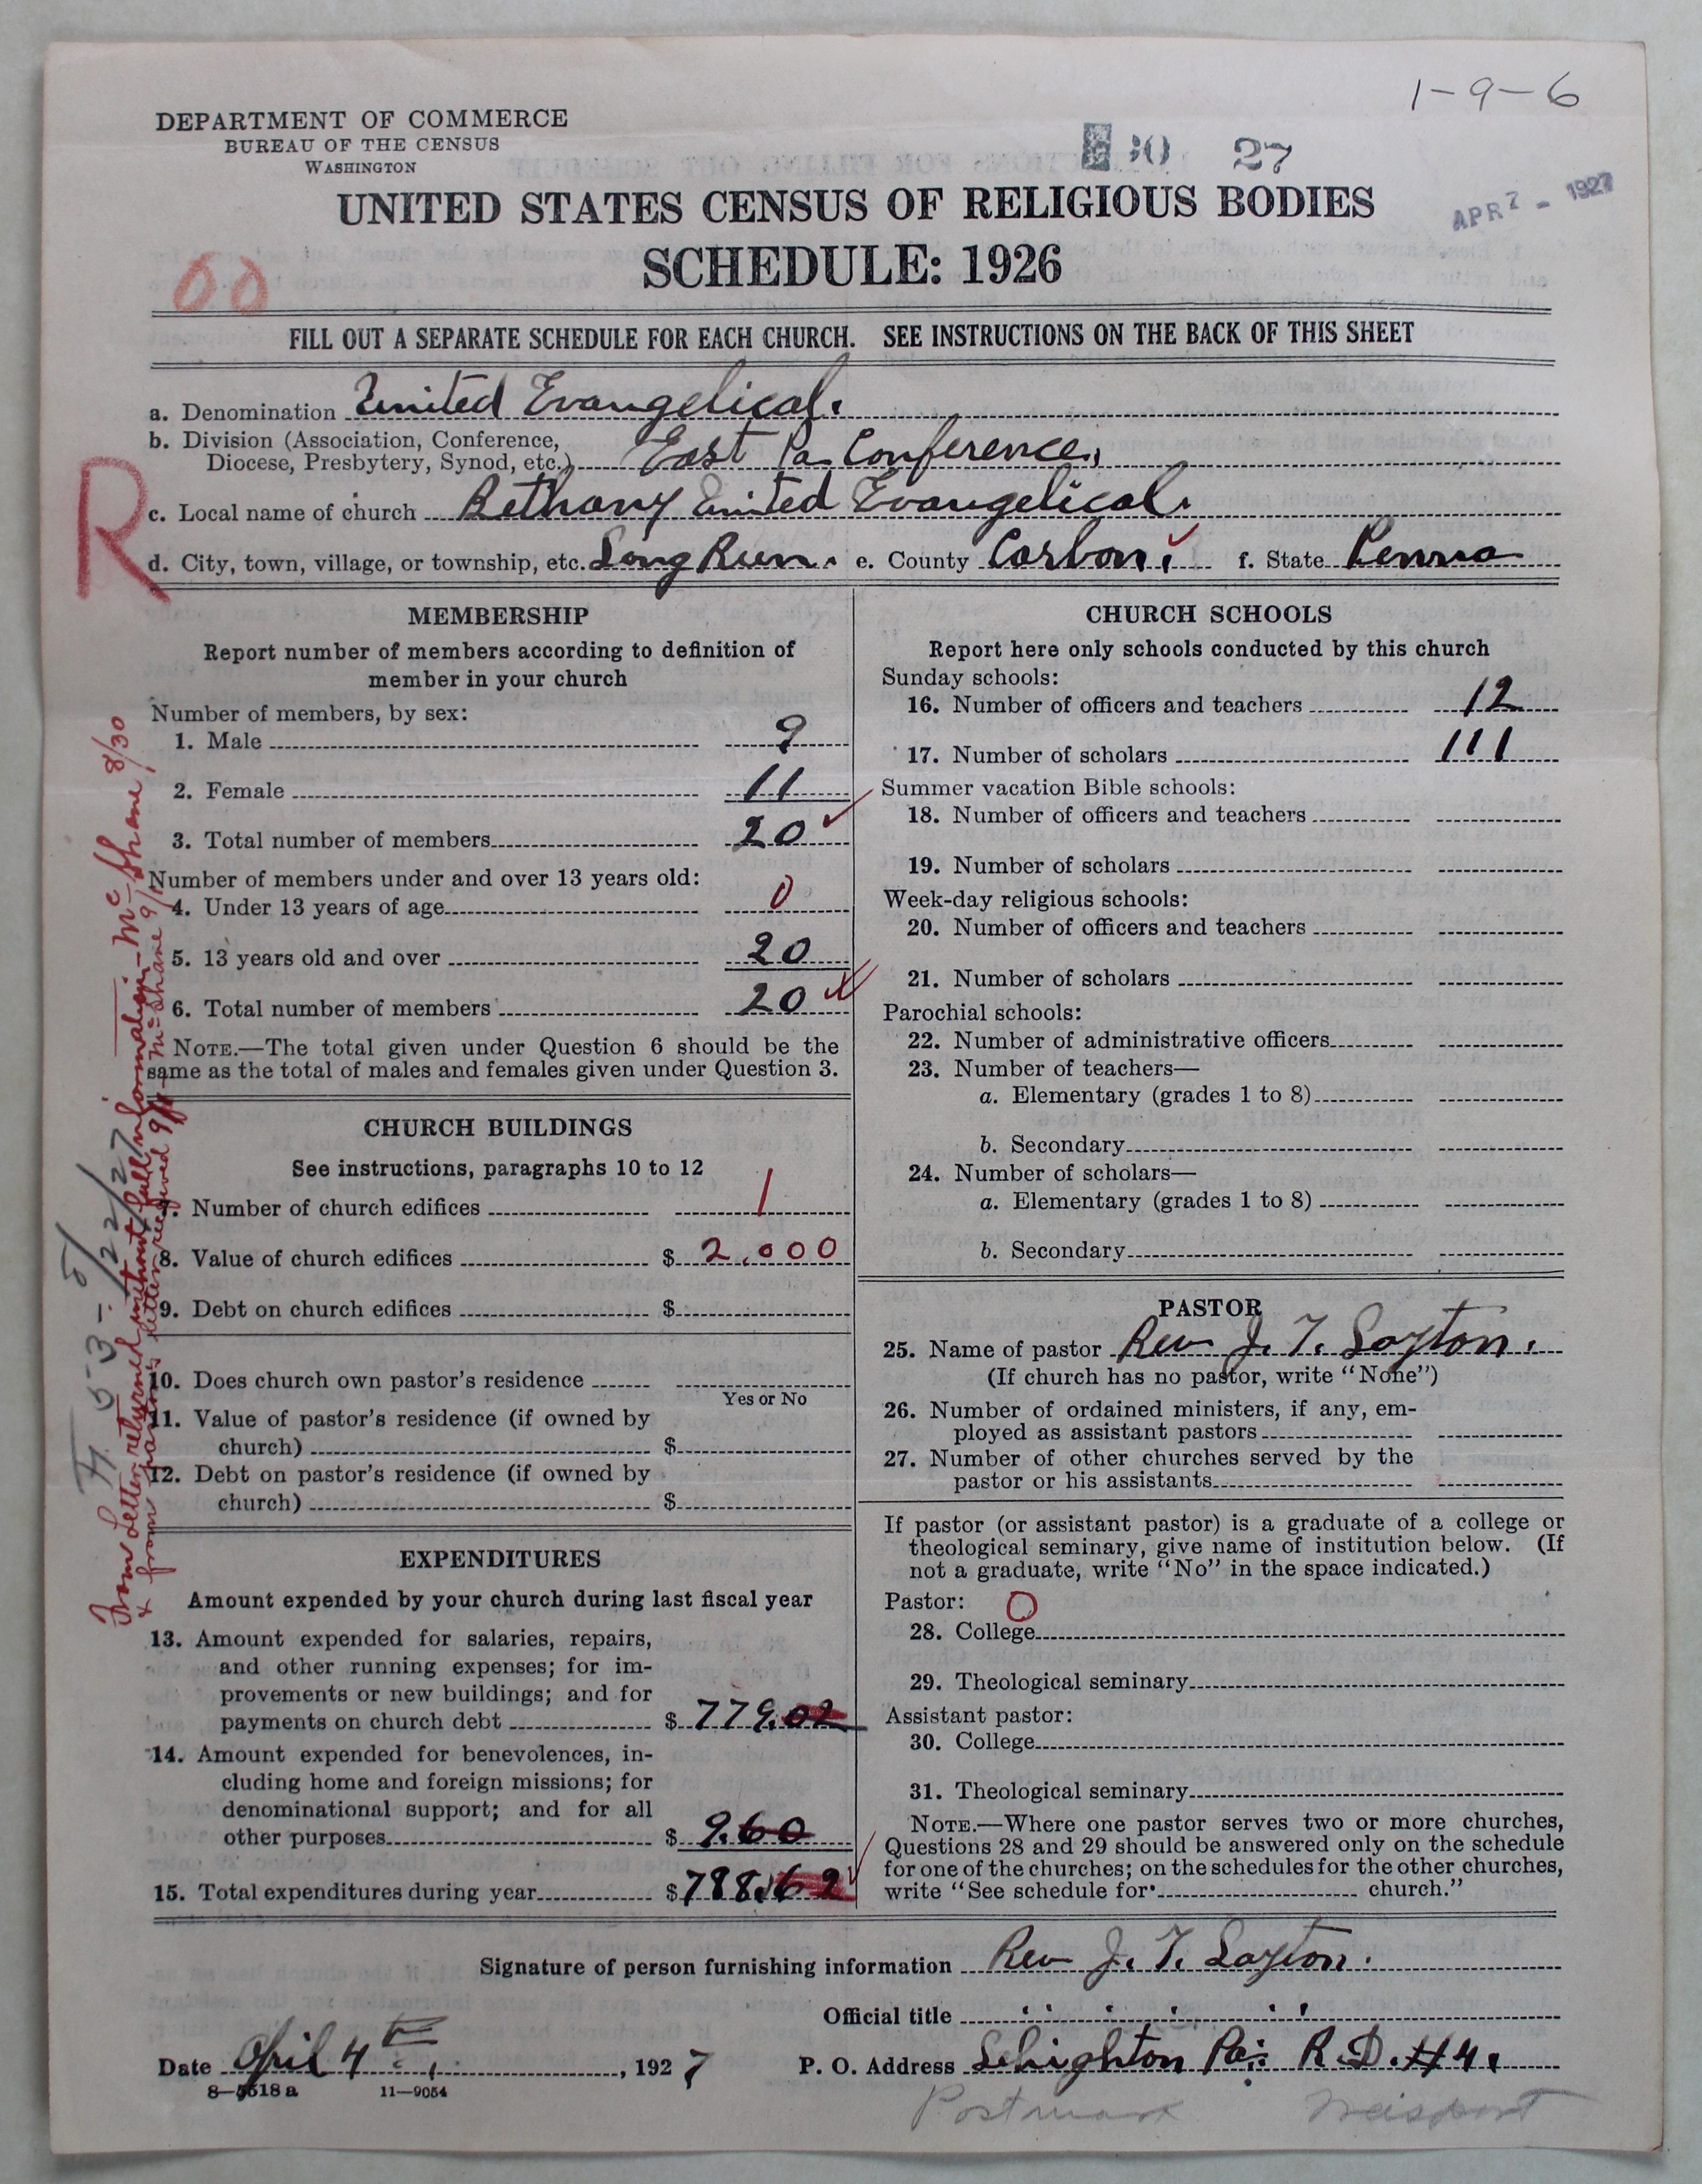 1-9-6
DEPARTMENT OF COMMERCE
BUREAU OF THE CENSUS
WASHINGTON
30 27
APR 7 - 1927
UNITED STATES CENSUS OF RELIGIOUS BODIES
SCHEDULE: 1926
00
FILL OUT A SEPARATE SCHEDULE FOR EACH CHURCH. SEE INSTRUCTIONS ON THE BACK OF THIS SHEET
a. Denomination United Evangelical.
b. Division (Association, Conference,
Diocese, Presbytery, Synod, etc.) East Pa Conference,
R
c. Local name of church Bethany United Evangelical.
d. City, town, village, or township, etc. Long Run. e. County Carbon. f. State Penna
MEMBERSHIP
Report number of members according to definition of
member in your church
Number of members, by sex:
1. Male 9
2. Female 11
3. Total number of members 20
Number of members under and over 13 years old:
4. Under 13 years of age 0
5. 13 years old and over 20
6. Total number of members 20
NOTE.—The total given under Question 6 should be the
same as the total of males and females given under Question 3.
CHURCH BUILDINGS
See instructions, paragraphs 10 to 12
7. Number of church edifices 1
8. Value of church edifices $ 2,000
9. Debt on church edifices $
10. Does church own pastor's residence
Yes or No
11. Value of pastor's residence (if owned by
church) $
12. Debt on pastor's residence (if owned by
church) $
EXPENDITURES
Amount expended by your church during last fiscal year
13. Amount expended for salaries, repairs,
and other running expenses; for im-
provements or new buildings; and for
payments on church debt $ 779.02
14. Amount expended for benevolences, in-
cluding home and foreign missions; for
denominational support; and for all
other purposes $ 9.60
15. Total expenditures during year $ 788.62
From Letter returned without full information - McShane 8/30
& from pastor's letter received 9/ McShane 9/
5-3- 5/22/27
CHURCH SCHOOLS
Report here only schools conducted by this church
Sunday schools:
16. Number of officers and teachers 12
17. Number of scholars 111
Summer vacation Bible schools:
18. Number of officers and teachers
19. Number of scholars
Week-day religious schools:
20. Number of officers and teachers
21. Number of scholars
Parochial schools:
22. Number of administrative officers
23. Number of teachers—
a. Elementary (grades 1 to 8)
b. Secondary
24. Number of scholars—
a. Elementary (grades 1 to 8)
b. Secondary
PASTOR
25. Name of pastor Rev J. T. Layton.
(If church has no pastor, write "None")
26. Number of ordained ministers, if any, em-
ployed as assistant pastors
27. Number of other churches served by the
pastor or his assistants
If pastor (or assistant pastor) is a graduate of a college or
theological seminary, give name of institution below. (If
not a graduate, write "No" in the space indicated.)
Pastor: 0
28. College
29. Theological seminary
Assistant pastor:
30. College
31. Theological seminary
NOTE.—Where one pastor serves two or more churches,
Questions 28 and 29 should be answered only on the schedule
for one of the churches; on the schedules for the other churches,
write "See schedule for church."
Signature of person furnishing information Rev J. T. Layton.
Official title " " " "
Date April 4th, 1927 P. O. Address Lehighton Pa: R.D. #4.
8—5518 a 11—9054
Postmark Weisport